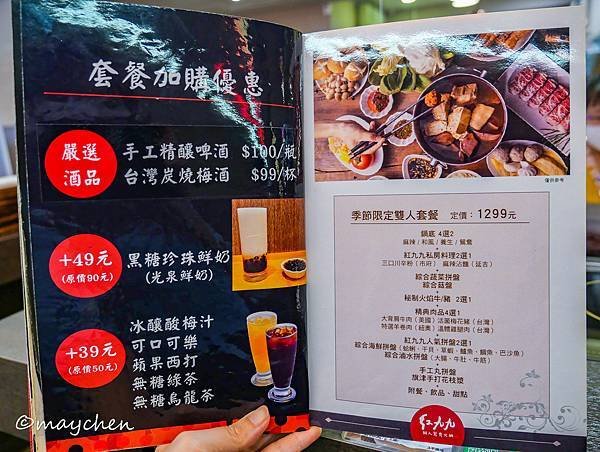 套餐加購優惠
嚴選
酒品
手工精釀啤酒 $100/瓶
台灣炭燒梅酒 $99/杯
+49元
(原價90元)
黑糖珍珠鮮奶
(光泉鮮奶)
+39元
(原價50元)
冰釀酸梅汁
可口可樂
蘋果西打
無糖綠茶
無糖烏龍茶
©maychen
僅供參考
季節限定雙人套餐 定價：1299元
鍋底 4選2
麻辣/和風/養生/鴛鴦
+
紅九九私房料理2選1
三口川辛粉（市府） 麻辣沾麵（延吉）
+
綜合蔬菜拼盤
綜合菇盤
+
秘制火焰牛/豬 2選1
+
精典肉品4選1
大背肩牛肉（美國）活菌梅花豬（台灣）
特選羊卷肉（紐奧）溫體雞腿肉（台灣）
+
紅九九人氣拼盤2選1
綜合海鮮拼盤（蛤蜊、干貝、草蝦、鱸魚、鯛魚、巴沙魚）
綜合滷水拼盤（大腸、牛肚、牛筋）
+
手工丸拼盤
旗津手打花枝漿
+
附餐、飲品、甜點
紅九九